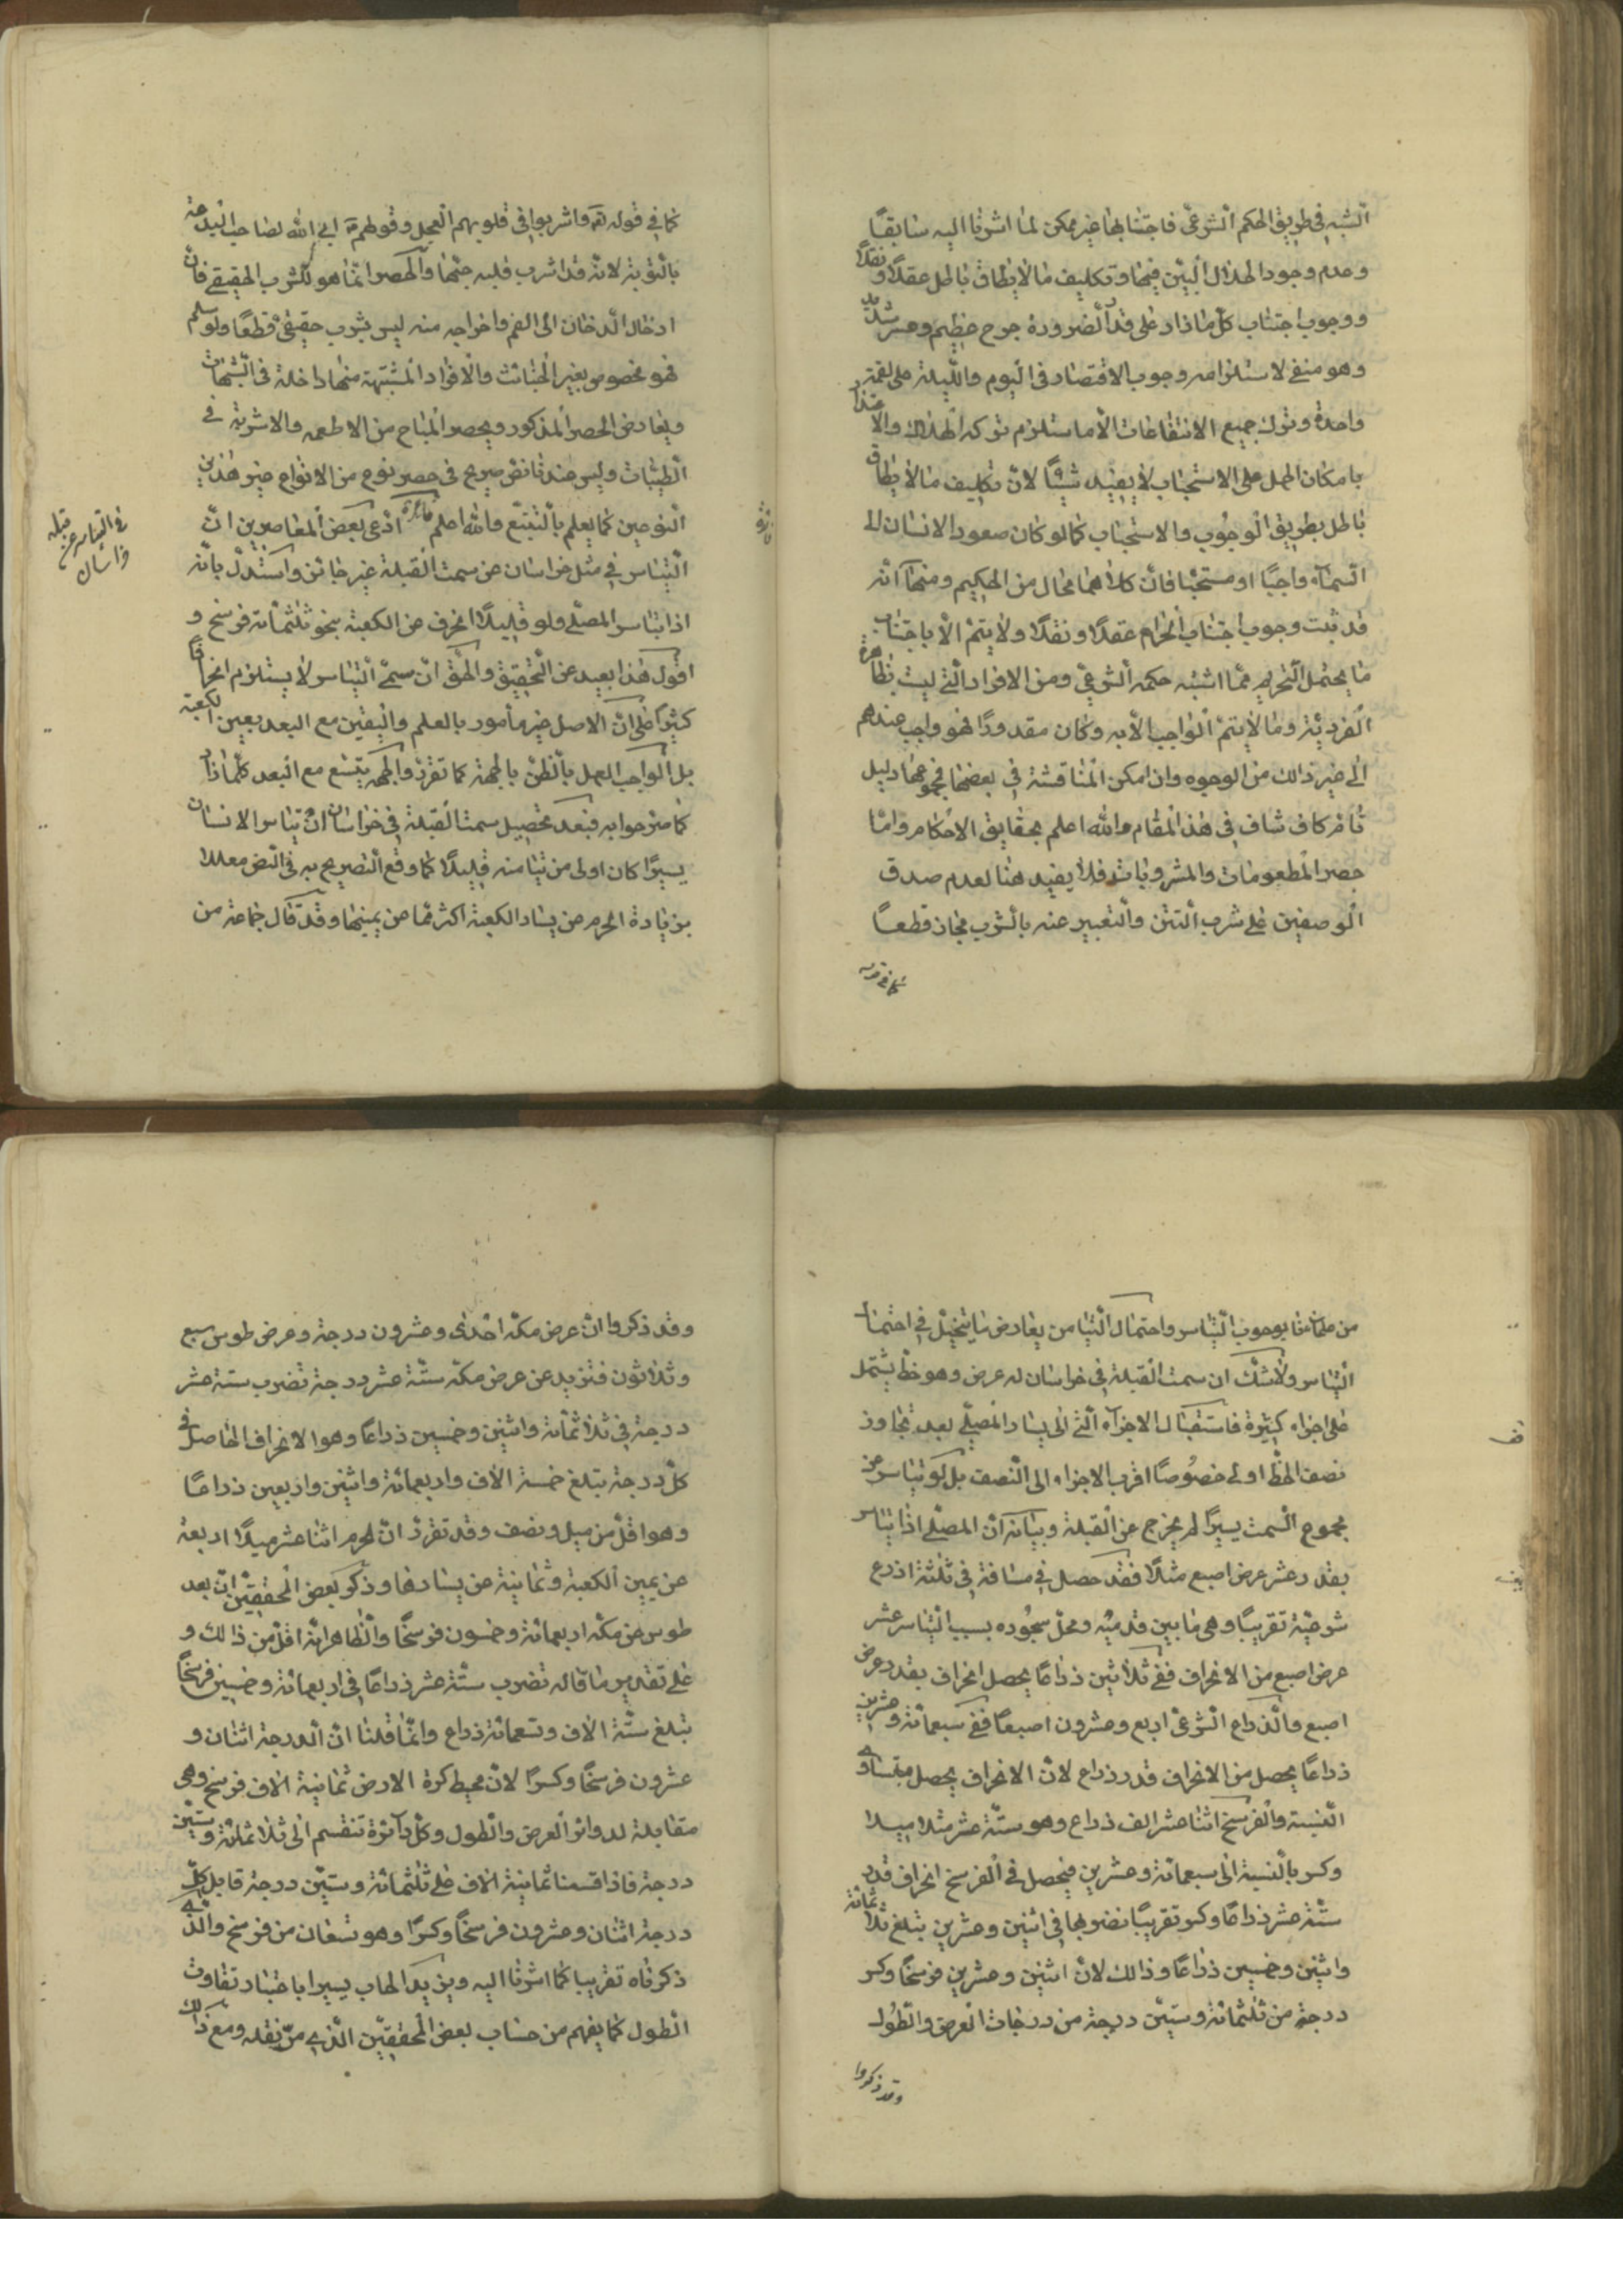 الشبه في طريق الحكم الشرعي فاجتنابها غير ممكن لما اشرنا اليه سابقًا
وعدم وجود الحلال البين فيها وتكليف ما لا يطاق باطل عقلًا ونقلًا
ووجوب اجتناب كل ما زاد على قدر الضرورة حرج عظيم وعسر شديد
وهو منفي لاستلزامه وجوب الاقتصار في اليوم والليلة على لقمة
واحدة وترك جميع الانتفاعات الا ما استلزم تركه الهلاك والاعتذار
بامكان الحمل على الاستحباب لا يفيد شيئًا لان تكليف ما لا يطاق
باطل بطريق الوجوب والاستحباب كما لو كان صعود الانسان الى
السماء واجبًا او مستحبًا فان كلاهما محال من الحكيم ومنها انه
قد ثبت وجوب اجتناب الحرام عقلًا ونقلًا ولا يتم الا باجتناب
ما يحتمل التحريم مما اشتبه حكمه الشرعي ومن الافراد التي ليست بظاهرة
الفردية وما لا يتم الواجب الا به وكان مقدورًا فهو واجب عندهم
الى غير ذالك من الوجوه وان امكن المناقشة في بعضها فمجموعها دليل
تام كاف شاف في هذا المقام والله اعلم بحقايق الاحكام واما
حصر المطعومات والمشروبات فلا يفيد هنا لعدم صدق
الوصفين على شرب التتن والتعبير عنه بالشرب مجاز قطعًا
كما في قوله
كما في قوله تع واشربوا في قلوبهم العجل وقولهم ع ابى الله لصاحب البدعة
بالتوبة لانه قد اشرب قلبه حبها والحصر انما هو للشرب الحقيقي فان
ادخال الدخان الى الفم واخراجه منه ليس بشرب حقيقي قطعًا ولو سلم
فهو مخصوص بغير الخبائث والافراد المشتبهة منها داخلة في الشبهات
ويعارض الحصر المذكور ويحصر المباح من الاطعمه والاشربة في
الطيبات وليس عندنا نص صريح في حصر نوع من الانواع غير هذين
النوعين كما يعلم بالتتبع والله اعلم فائدة ادعى بعض المعاصرين ان
التياسر في مثل خراسان عن سمت القبلة غير جائز واستدل بانه
اذا تياسر المصلي ولو قليلًا انحرف عن الكعبة بنحو ثلثمائة فرسخ و
اقول هذا بعيد عن التحقيق والحق ان مسمى التياسر لا يستلزم انحرافًا
كثيرًا على ان الاصل غير مأمور بالعلم واليقين مع البعد بعين الكعبة
بل الواجب العمل بالظن بالجهة كما تقرر والجهه يتسع مع البعد كلما ازداد
كما صرحوا به فبعد تحصيل سمت القبلة في خراسان ان تياسر الانسان
يسيرًا كان اولى من تيامنه قليلًا كما وقع التصريح به في النص معللا
بزيادة الحرم عن يسار الكعبة اكثر مما عن يمينها وقد قال جماعة من
في التياسر عن قبلة
خراسان
من علمائنا بوجوب التياسر واحتمال التيامن يعارض ما يتخيل في احتمال
التياسر ولا شك ان سمت القبلة في خراسان له عرض وهو خط يشتمل
على اجزاء كثيرة فاستقبال الاجزاء التي الى يسار المصلي بعد تجاوز
نصف الخط اولى خصوصًا اقرب الاجزاء الى النصف بل لو تياسر عن
مجموع السمت يسيرًا لم يخرج عن القبلة وبيانه ان المصلي اذا تياسر
بقدر عشر عرض اصبع مثلًا فقد حصل في مسافة في ثلثة اذرع
شرعية تقريبًا وهي ما بين قدميه ومحل سجوده بسبب التياسر عشر
عرض اصبع من الانحراف ففي ثلاثين ذراعًا يحصل انحراف بقدر عرض
اصبع والذراع الشرعي اربع وعشرون اصبعًا ففي سبعمائة وعشرين
ذراعًا يحصل من الانحراف قدر ذراع لان الانحراف يحصل متساوي
النسبة والفرسخ اثنا عشر الف ذراع وهو ستة عشر مثلا ميلا
وكسر بالنسبة الى سبعمائة وعشرين فيحصل في الفرسخ انحراف قدر
ستة عشر ذراعًا وكسر تقريبًا نضربها في اثنين وعشرين تبلغ ثلاثمائة
واثنين وخمسين ذراعًا وذالك لان اثنين وعشرين فرسخًا وكسر
درجة من ثلثمائة وستين درجة من درجات العرض والطول
وقد ذكروا
وقد ذكروا ان عرض مكة احدى وعشرون درجة وعرض طوس سبع
وثلاثون فتزيد عن عرض مكة ستة عشر درجة تضرب ستة عشر
درجة في ثلاثمائة واثنين وخمسين ذراعًا وهو الانحراف الحاصل في
كل درجة تبلغ خمسة الاف واربعمائة واثنين واربعين ذراعًا
وهو اقل من ميل ونصف وقد تقرر ان لحرم اثنا عشر ميلًا اربعة
عن يمين الكعبة وثمانية عن يسارها وذكر بعض المحققين ان بعد
طوس عن مكة اربعمائة وخمسون فرسخًا والظاهر انه اقل من ذالك و
على تقدير ما قاله تضرب ستة عشر ذراعًا في اربعمائة وخمسين فرسخًا
تبلغ ستة الاف وتسعمائة ذراع وانما قلنا ان الدرجة اثنان و
عشرون فرسخًا وكسرًا لان محيط كرة الارض ثمانية الاف فرسخ وهي
مقابلة لدوائر العرض والطول وكل دائرة تنقسم الى ثلاثمائة وستين
درجة فاذا قسمنا ثمانية الاف على ثلثمائة وستين درجة قابل كل
درجة اثنان وعشرون فرسخًا وكسرًا وهو تسعان من فرسخ والذي
ذكرناه تقريبا كما اشرنا اليه ويزيد الحساب يسيرا باعتبار تفاوت
الطول كما يفهم من حساب بعض المحققين الذي مر نقله ومع ذالك